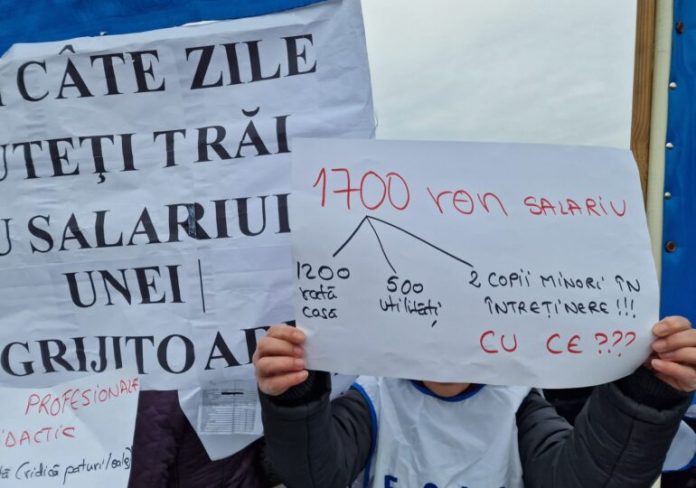 CÂTE ZILE
UTEȚI TRĂI
U SALARIUL
UNEI
GRIJITOARE
1700 ron SALARIU
1200
rată
casă
500
utilități
2 COPII MINORI ÎN
ÎNTREȚINERE!!!
CU CE???
PROFESIONALE
IDACTIC
(ridică paturi/